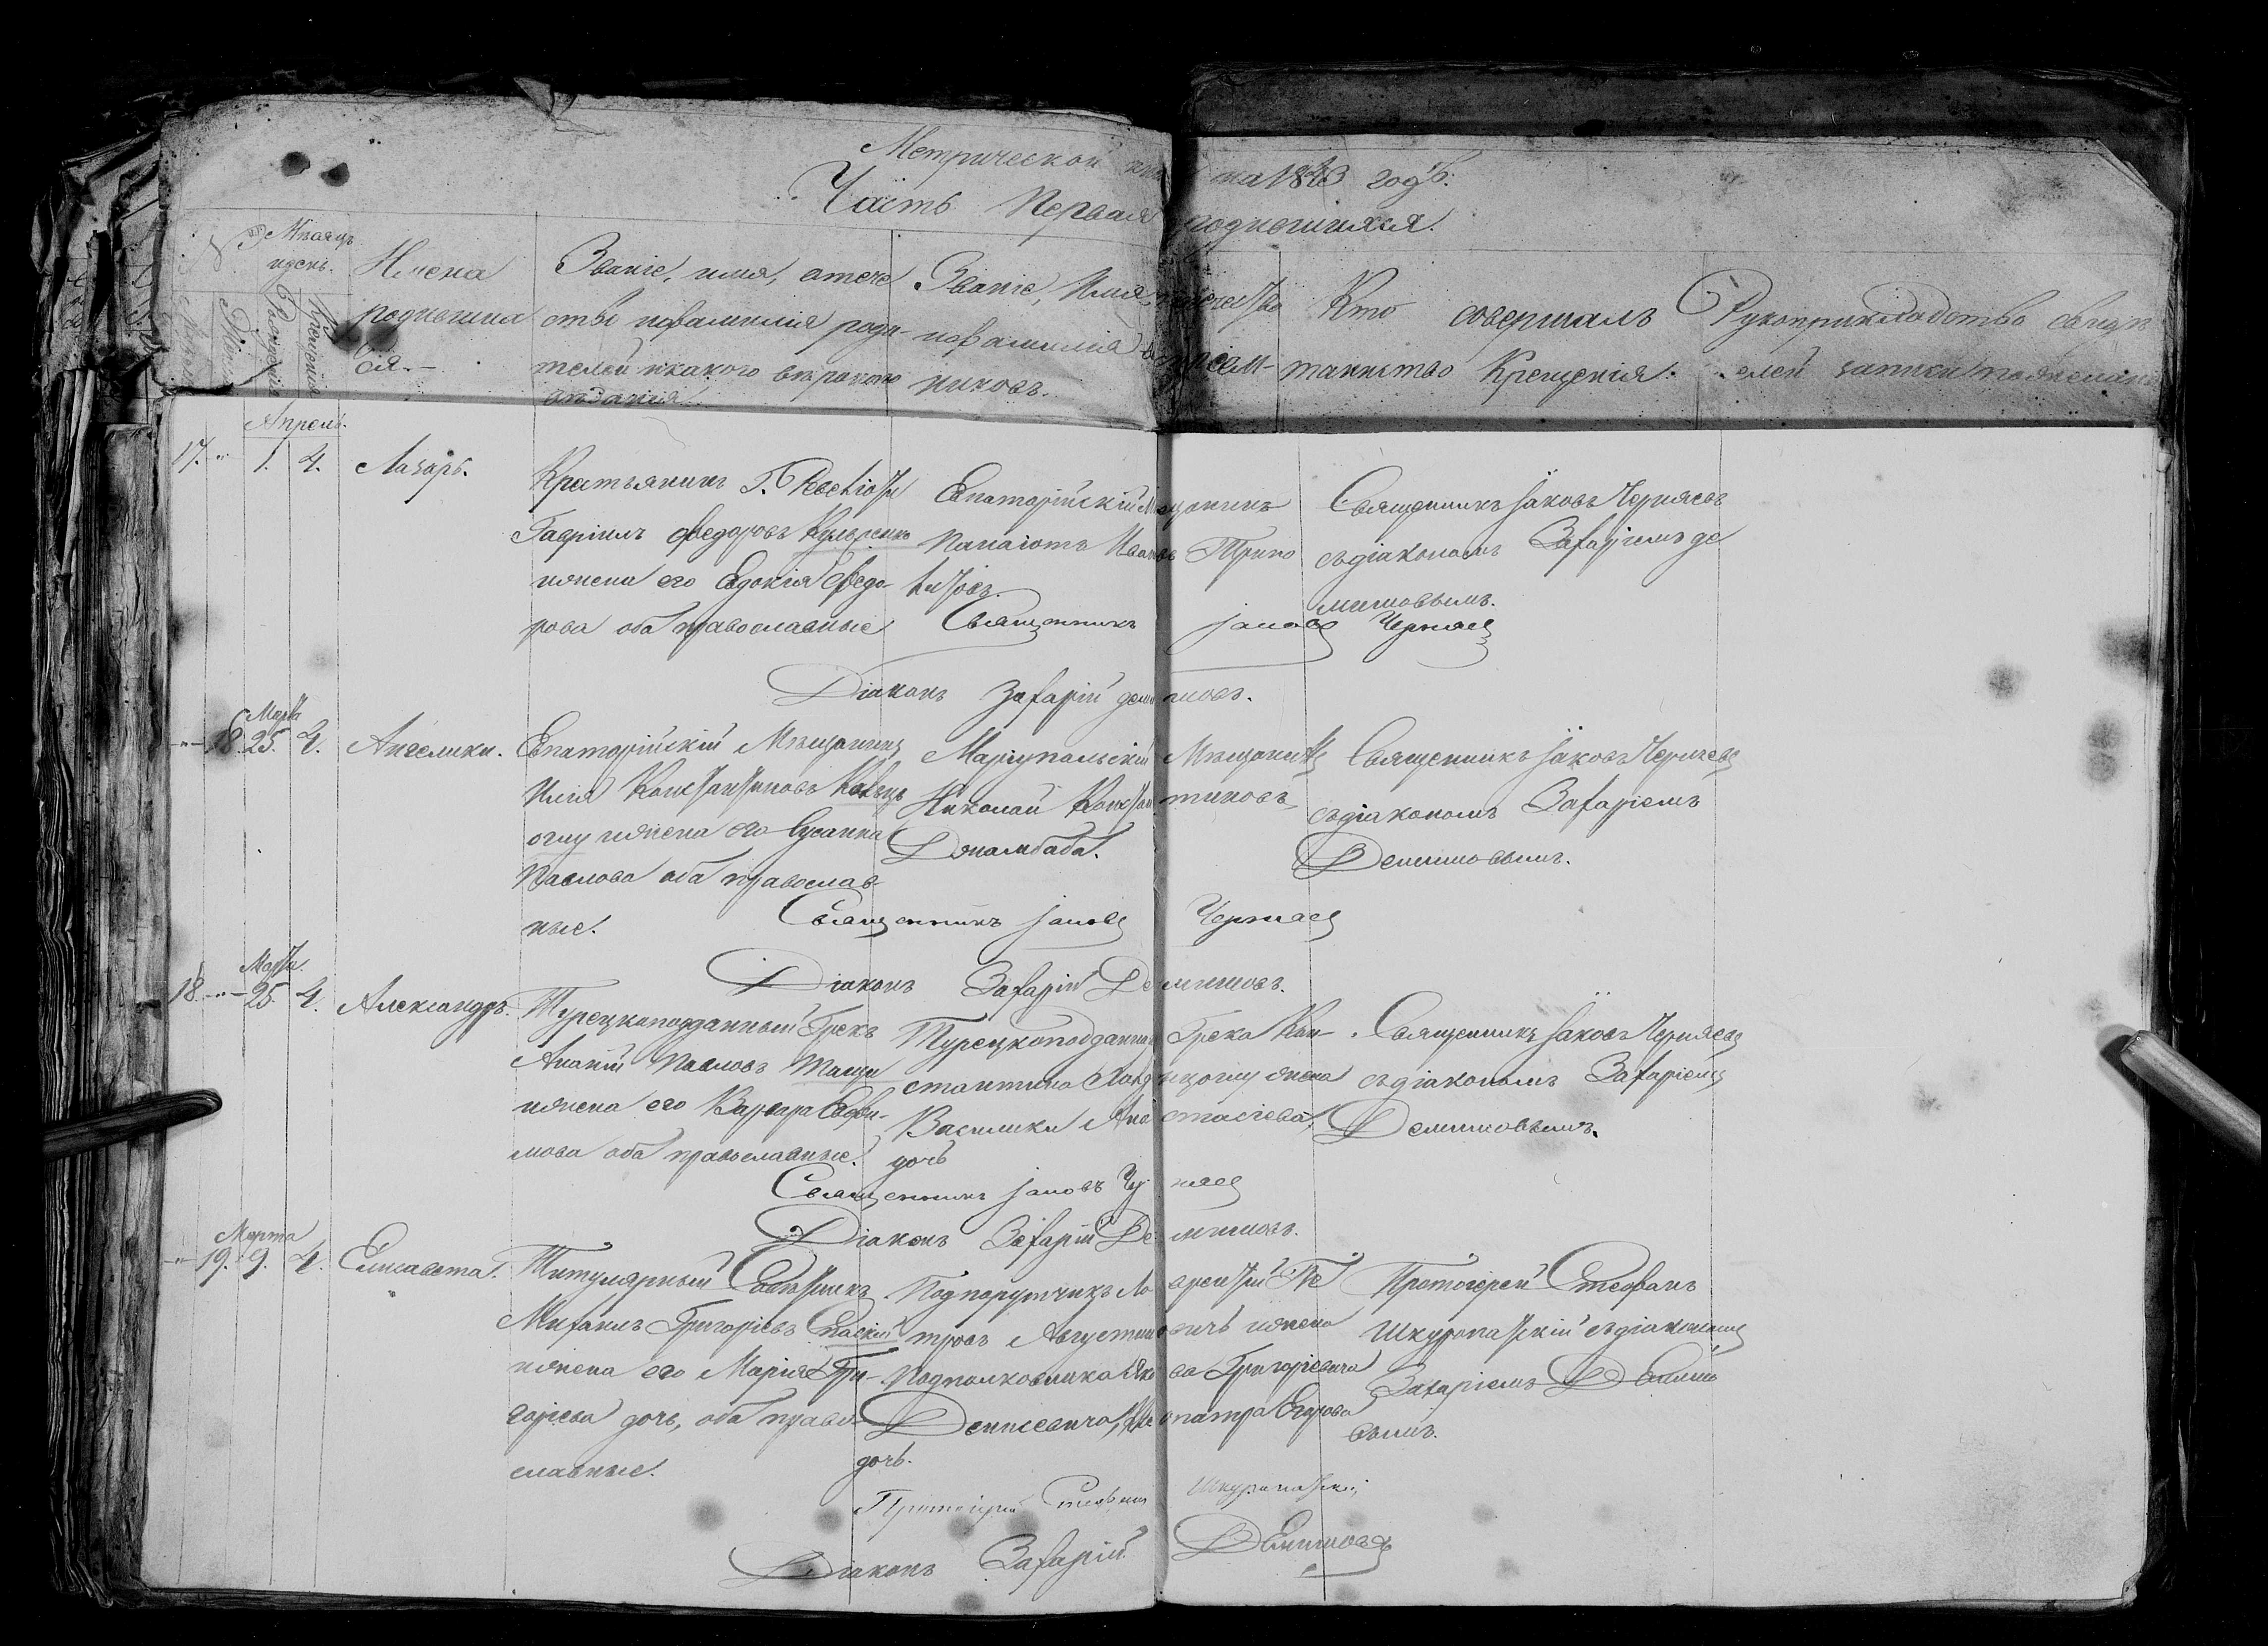 Метрической на 1843 годъ.
Часть Первая родившихся.
Мѣсяцъ и день.
Рожденія Крещенія
Имена родившихся.
Званіе, имя, отечество и фамилія родителей и какого вѣроисповѣданія
Званіе, Имя, отечество и фамилія воспріемниковъ.
Кто совершалъ таинство Крещенія.
Рукоприкладство свидѣтелей записи по желанію
Апрель.
17. 1. 4. Лазарь.
Гавріилъ Федоровъ
и жена его Евдокія Федорова оба православные
Евпаторійскій Мещанинъ
Панаіотъ Ивановъ
Священникъ Іаковъ Черняевъ
съ діакономъ Захаріемъ Демишовымъ.
Священникъ Іаковъ Черняевъ
Діаконъ Захарій Демишовъ.
Марта
18. 25. 4. Ангелики.
Евпаторійскій Мѣщанинъ
Илія Константиновъ
и жена его Сусанна
Павлова оба православные.
Маріупольскій Мѣщанинъ
Николай Константиновъ
Священникъ Іаковъ Черняевъ
съ діакономъ Захаріемъ
Демишовымъ.
Священникъ Іаковъ Черняевъ
Діаконъ Захарій Демишовъ.
Марта.
18. 25. 4. Александръ.
Турецкоподданный Грекъ
Павловъ
и жена его Варвара
оба православные.
Турецкоподданнаго Грека Константина
жена
Василики Анастасіева
дочь
Священникъ Іаковъ Черняевъ
съ діакономъ Захаріемъ
Демишовымъ.
Священникъ Іаковъ Черняевъ
Діаконъ Захарій Демишовъ.
Марта
19. 9. 4. Елисавета.
Титулярный Совѣтникъ
Михаилъ Григорьевъ Спаскій
и жена его Марія Григорьева дочь, оба православные.
Подпорутчикъ Лаврентій Петровъ Августиновичъ и жена
Подполковника Якова Григорьевича
Денисевича, Клеопатра Егорова
дочь.
Протоіерей Стефанъ
Шкуропатскій съ діакономъ
Захаріемъ Демишовымъ.
Протоіерей Стефанъ Шкуропатскій
Діаконъ Захарій Демишовъ